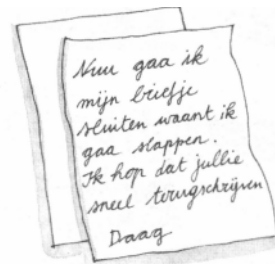 Nuu gaa ik
mijn briefje
sluiten waant ik
gaa slappen.
Ik hop dat jullie
sneel terugschrijven
Daag